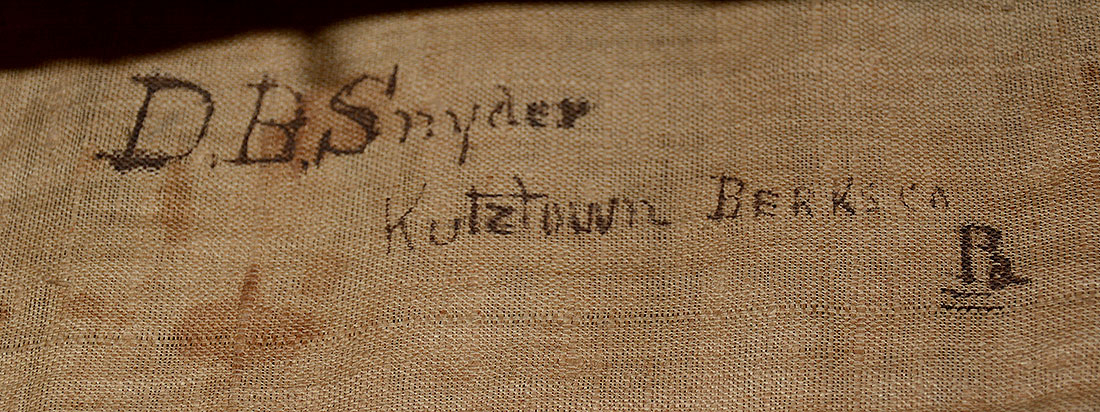 D.B. Snyder
Kutztown BERKS CO
Pa